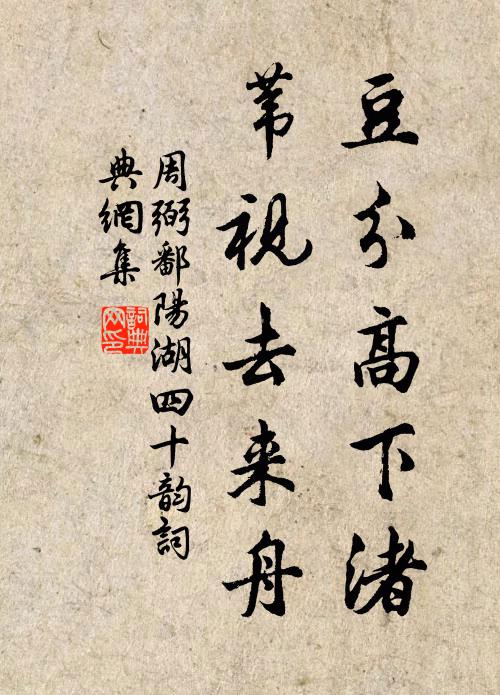 豆分高下渚
苇視去来舟
周弼鄱陽湖四十韵詞
典網集
詞典
网印